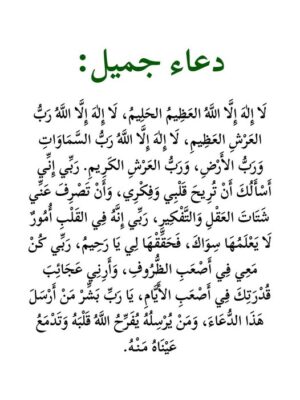 دعاء جميل:
لَا إِلَهَ إِلَّا اللَّهُ العَظِيمُ الحَلِيمُ، لَا إِلَهَ إِلَّا اللَّهُ رَبُّ
العَرْشِ العَظِيمِ، لَا إِلَهَ إِلَّا اللَّهُ رَبُّ السَّمَاوَاتِ
وَرَبُّ الأَرْضِ، وَرَبُّ العَرْشِ الكَرِيمِ. رَبِّي إِنِّي
أَسْأَلُكَ أَنْ تُرِيحَ قَلْبِي وَفِكْرِي، وَأَنْ تَصْرِفَ عَنِّي
شَتَاتَ العَقْلِ وَالتَّفْكِيرِ، رَبِّي إِنَّهُ فِي القَلْبِ أُمُورٌ
لَا يَعْلَمُهَا سِوَاكَ، فَحَقِّقْهَا لِي يَا رَحِيمُ، رَبِّي كُنْ
مَعِي فِي أَصْعَبِ الظُّرُوفِ، وَأَرِنِي عَجَائِبَ
قُدْرَتِكَ فِي أَصْعَبِ الأَيَّامِ، يَا رَبِّ بَشِّرْ مَنْ أَرْسَلَ
هَذَا الدُّعَاءَ، وَمَنْ يُرْسِلُهُ يُفَرِّحُ اللَّهُ قَلْبَهُ وَتَدْمَعُ
عَيْنَاهُ مِنْهُ.